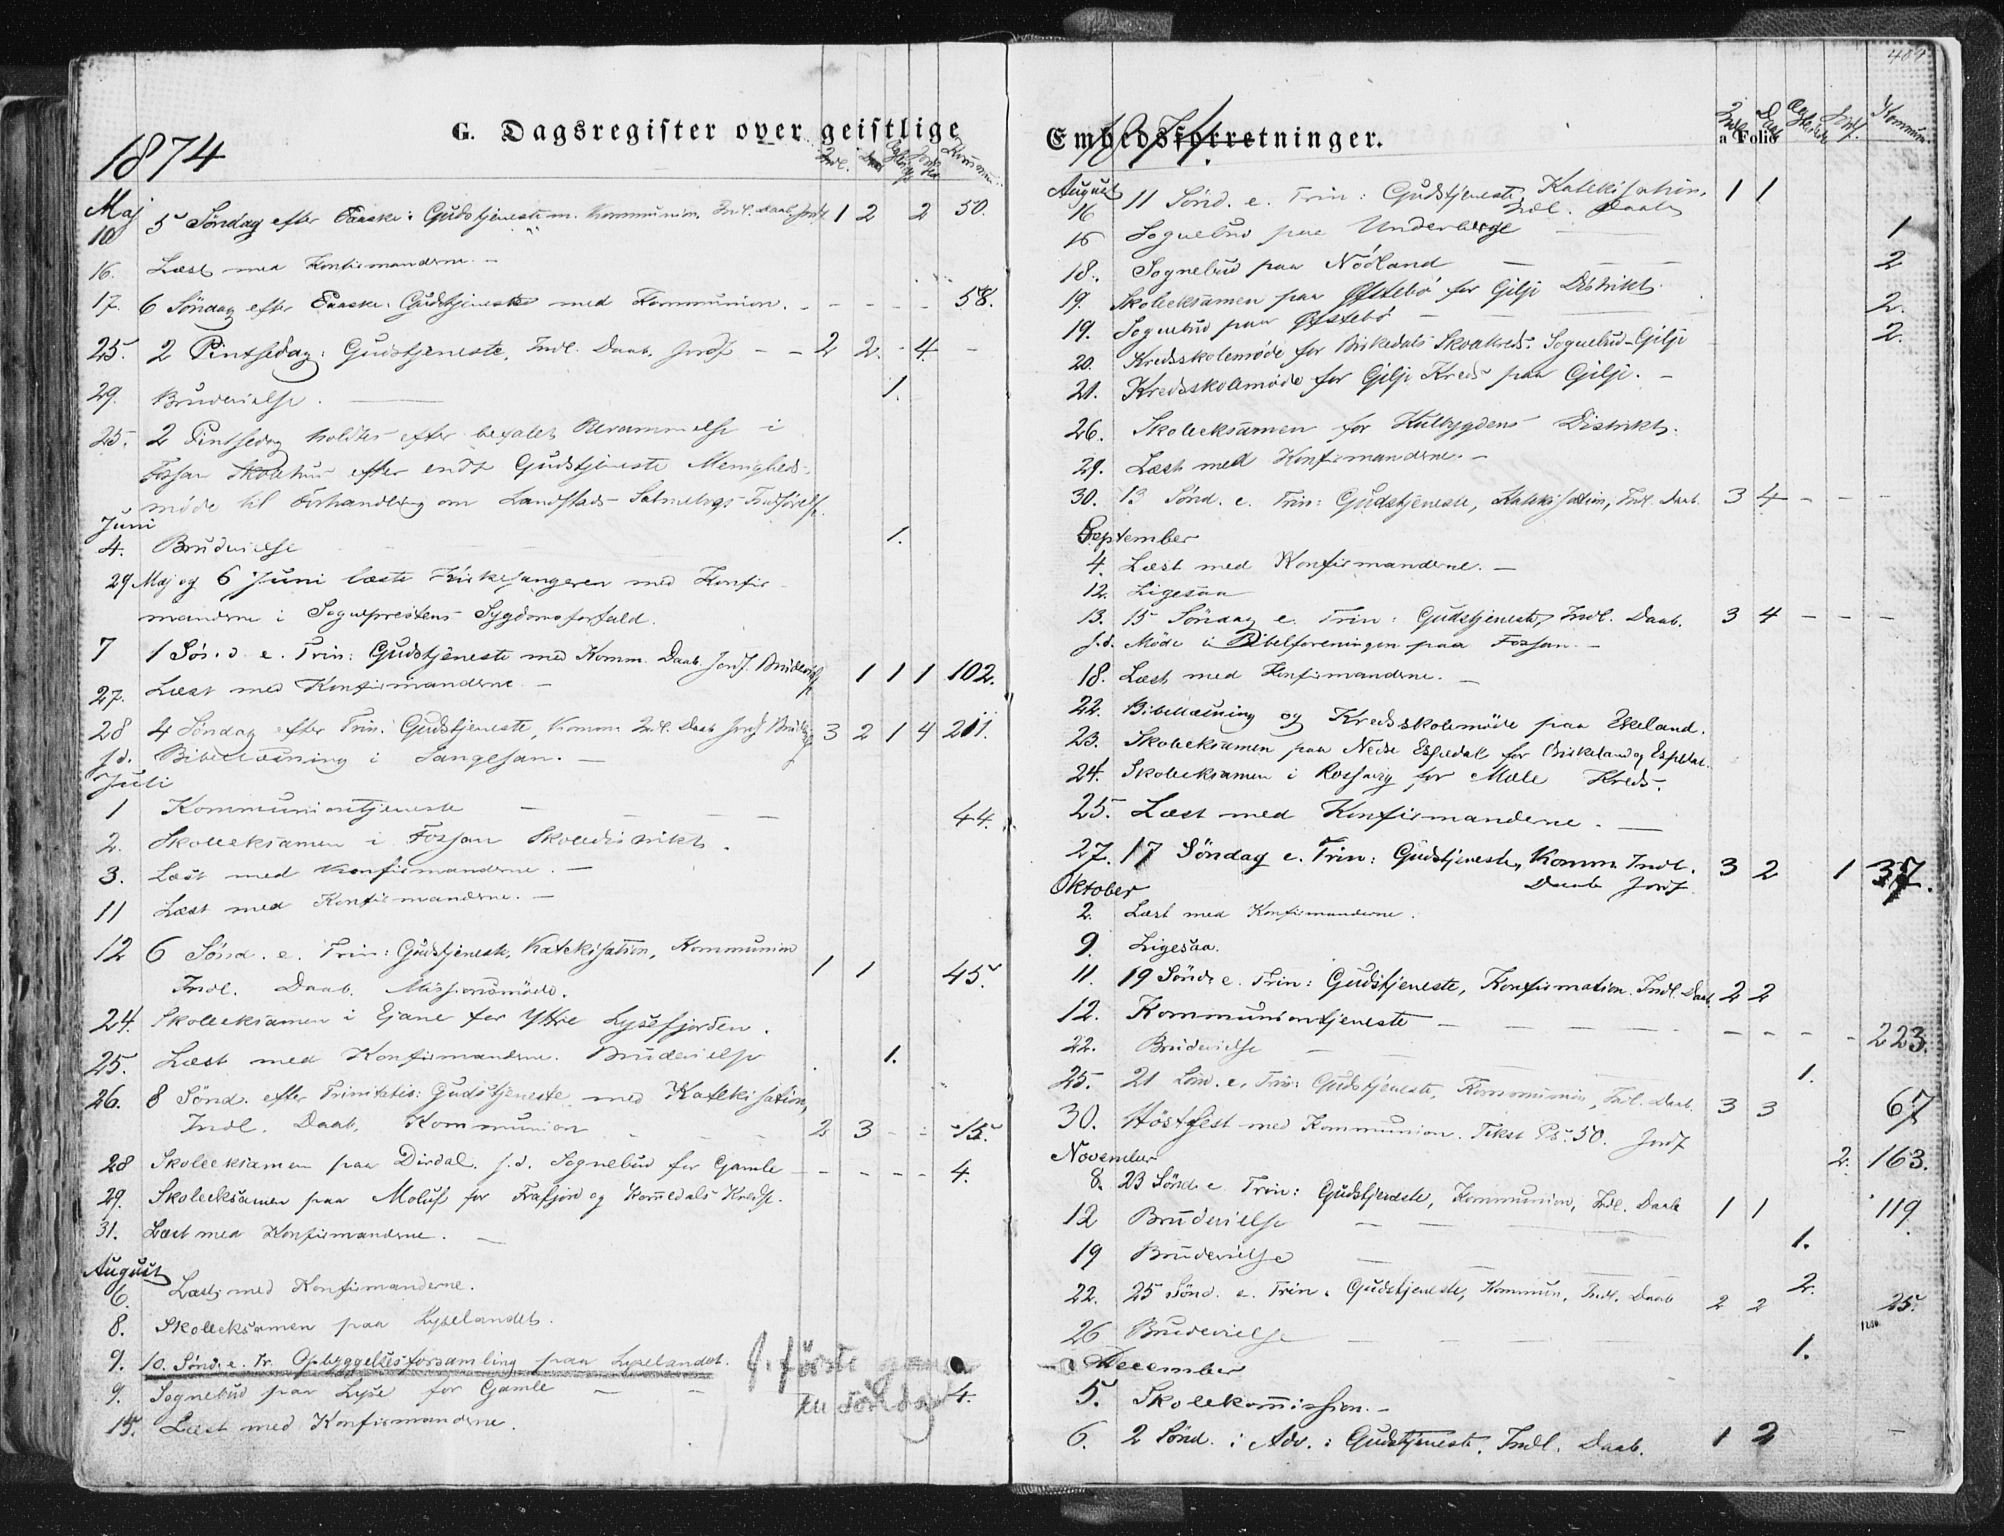 G. Dagsregister over geistlige
1874
Indl. Daab Jordf. Kommun.
Maj
10 5 Söndag efter Paaske: Gudstjeneste m. Kommunion. Indl. Daab. Jordf 1 2 2 50.
16. Læst med Konfirmanderne. –
17. 6 Söndag efter Paaske: Gudstjeneste med Kommunion. – – – – 58.
25. 2 Pintsedag: Gudstjeneste, Indl. Daab. Jordf – – 2 2. - 4. –
29. Brudevielse. 1.
25. 2 Pintsedag holdtes efter befalet Berammelse i
Fossan Skolehus efter endt Gudstjeneste Menigheds-
möde til Forhandling om Landstads Salmebogs Indförelse.
Juni
4. Brudevielse 1.
29 Maj og 6 Juni læste Kirkesangeren med Konfir-
manderne i Sognepræstens Sygdomsforfald.
7 1 Sön.d. e. Trin: Gudstjeneste med Komm. Daab. Jordf. Brudevielse 1 1 1 102.
27. Læst med Konfirmanderne –
28 4 Söndag efter Trin. Gudstjeneste, Komm. Indl. Daab Jordf Brudev. 3 2 1 4 211.
s.d. Bibellæsning i Sangesan. –
Juli
1 Kommuniontjeneste – – – – 44.
2. Skoleeksamen i Fossan Skoledistrikt.
3. Læst med Konfirmanderne. –
11 Læst med Konfirmanderne. –
12 6 Sönd. e. Trin: Gudstjeneste, Katekisation, Kommunion
Indl. Daab. Missionsmöde. 1 1 45.
24. Skoleeksamen i Ejane for Yttre Lysefjorden.
25. Læst med Konfirmanderne. Brudevielse 1.
26. 8 Sönd. efter Trinitatis: Gudstjeneste med Katekisation,
Indl. Daab. Kommunion 2 3 – – 15.
28 Skoleeksamen paa Dirdal. s.d. Sognebud for Gamle – – – – 4.
29. Skoleeksamen paa Molaug for Frafjord og Kommedals Kreds.
31. Læst med Konfirmanderne. –
August
6. Læst med Konfirmanderne.
8. Skoleeksamen paa Lyselandet.
9. 10. Sönd. e. Tr. Opbyggelsesforsamling paa Lyselandet. förste gang
9. Sognebud paa Lyse for Gamle – – en söndag 4.
15. Læst med Konfirmanderne.
489
Embedsforretninger.
1874.
a Folio
Indl. Daab Jordf. Kommun.
August
16 11 Sönd. e. Trin: Gudstjeneste, Katekisation, 1 1
Indl. Daab
16 Sognebud paa Underberge 1
18. Sognebud paa Nöoland – – – 2
19. Skoleeksamen paa Östebö for Gilje Distrikt. 2.
19. Sognebud paa Östebö – – 2.
20. Kredsskolemöde for Birkedals Skolekreds. Sognebud-Gilje
21. Kredsskolemöde for Gilje Kreds paa Gilje. –
26. Skoleeksamen for Hulbygdens Distrikt.
29. Læst med Konfirmanderne. –
30. 13 Sönd. e. Trin: Gudstjeneste, Katekisation, Indl. Daab. 3 4 – – –
September
4. Læst med Konfirmanderne. –
12. Ligesaa
13. 15 Söndag e. Trin: Gudstjeneste, Indl. Daab. 3 4 – – –
s.d. Möde i Bibelforeningen paa Fossan. –
18. Læst med Konfirmanderne. –
22. Bibellæsning og Kredsskolemöde paa Eikeland.
23. Skoleeksamen paa Nedre Espedal for Birkeland og Espedal.
24. Skoleeksamen i Rossavig for Mæle Kreds.
25. Læst med Konfirmanderne. –
27. 17 Söndag e. Trin: Gudstjeneste, Komm. Indl. 3 2 1 37.
Daab Jordf
Oktober
2. Læst med Konfirmanderne.
9. Ligesaa.
11. 19 Sönd. e. Trin: Gudstjeneste, Konfirmation. Indl. Daab 2 2
12. Kommuniontjeneste – – – – 223.
22. Brudevielse – – 1.
25. 21 Sön. e. Trin: Gudstjeneste, Kommunion, Indl. Daab. 3 3 67
30. Höstfest med Kommunion. Tekst Ps. 50. Jordf 2. 163.
November
8. 23 Sönd. e Trin: Gudstjeneste, Kommunion, Indl. Daab 1 1 119
12 Brudevielse – – 1.
19 Brudevielse – 2.
22. 25 Sönd. e. Trin. Gudstjeneste, Kommun, Indl. Daab 2 2 25.
26 Brudevielse – – – 1.
December
5. Skolekommission. –
6. 2 Sönd. i Adv.: Gudstjeneste, Indl. Daab. 1 2 –